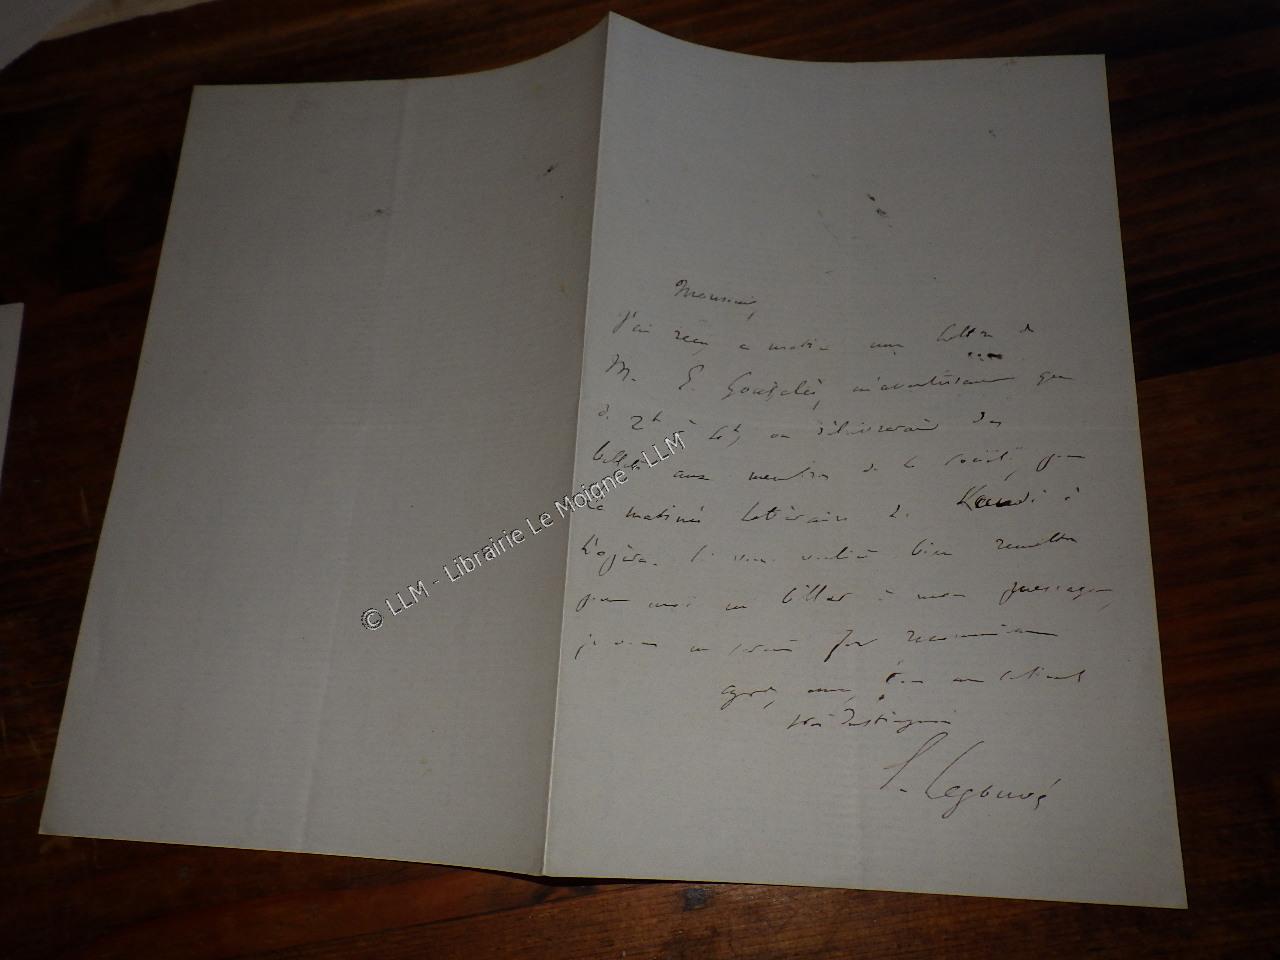 Monsieur,
J'ai reçu ce matin une lettre de
M. E. Gonzalès, m'avertissant que
de 2h à 4h, on délivrerait des
billets aux membres de la société, pour
la matinée littéraire de à
l'opéra. Si vous vouliez bien remettre
pour moi un billet à mon messager,
je vous en serais fort reconnaissant
agréez, mes sentiments
très distingués
E. Legouvé
© LLM - Librairie Le Moigne - LLM